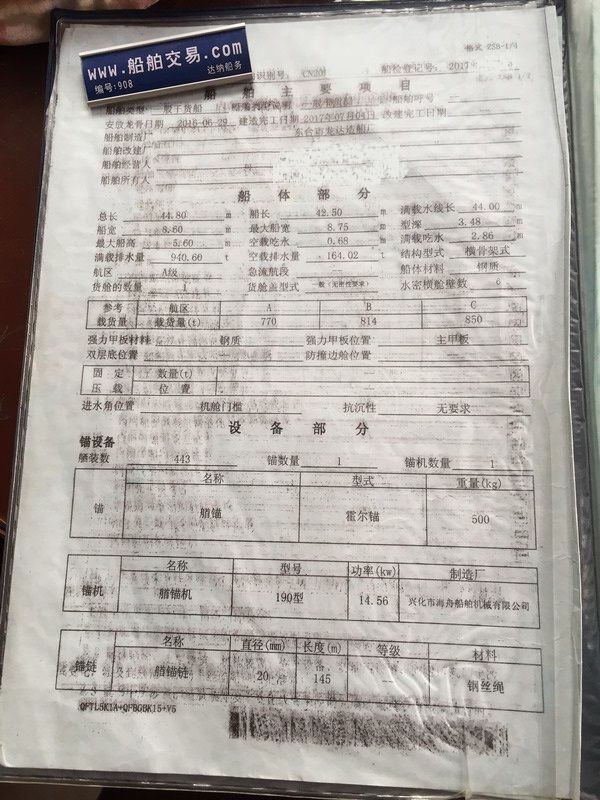 格式 ZSB-1/4
www.船舶交易.com
达纳船务
编号:908
识别号 CN20 船检登记号: 2017
船舶主要项目
船舶类型 一般干货船 船舶呼号 —
安放龙骨日期 2016-06-29 建造完工日期 2017年07月04日 改建完工日期
船舶制造厂 东台市龙达造船厂
船舶改建厂
船舶经营人
船舶所有人
船体部分
总长 44.80 m 船长 42.50 m 满载水线长 44.00 m
船宽 8.60 m 最大船宽 8.75 m 型深 3.48 m
最大船高 5.60 m 空载吃水 0.68 m 满载吃水 2.86 m
满载排水量 940.60 t 空载排水量 164.02 t 结构型式 横骨架式
航区 A级 急流航段 — 船体材料 钢质
货舱的数量 1 货舱盖型式 一般(无密性要求) 水密横舱壁数 6
参考 航区 A B C
载货量 载货量(t) 770 814 850
强力甲板材料 钢质 强力甲板位置 主甲板
双层底位置 — 防撞边舱位置 —
固定 数量(t) —
压载 位置 —
进水角位置 机舱门槛 抗沉性 无要求
设备部分
锚设备
舾装数 443 锚数量 1 锚机数量 1
名称 型式 重量(kg)
锚 艏锚 霍尔锚 500
名称 型号 功率(kw) 制造厂
锚机 艏锚机 190型 14.56 兴化市海舟船舶机械有限公司
名称 直径(mm) 长度(m) 等级 材料
锚链 艏锚链 20 145 — 钢丝绳
QFTL5K1A+QFBGBK15+V5